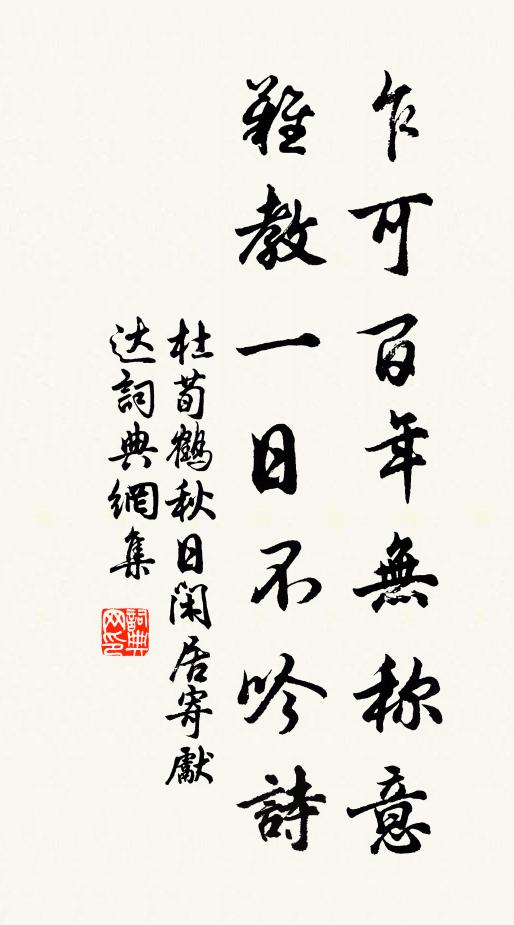 乍可百年無称意
難教一日不吟詩
杜荀鶴秋日閑居寄獻
达詞典網集
詞典网印